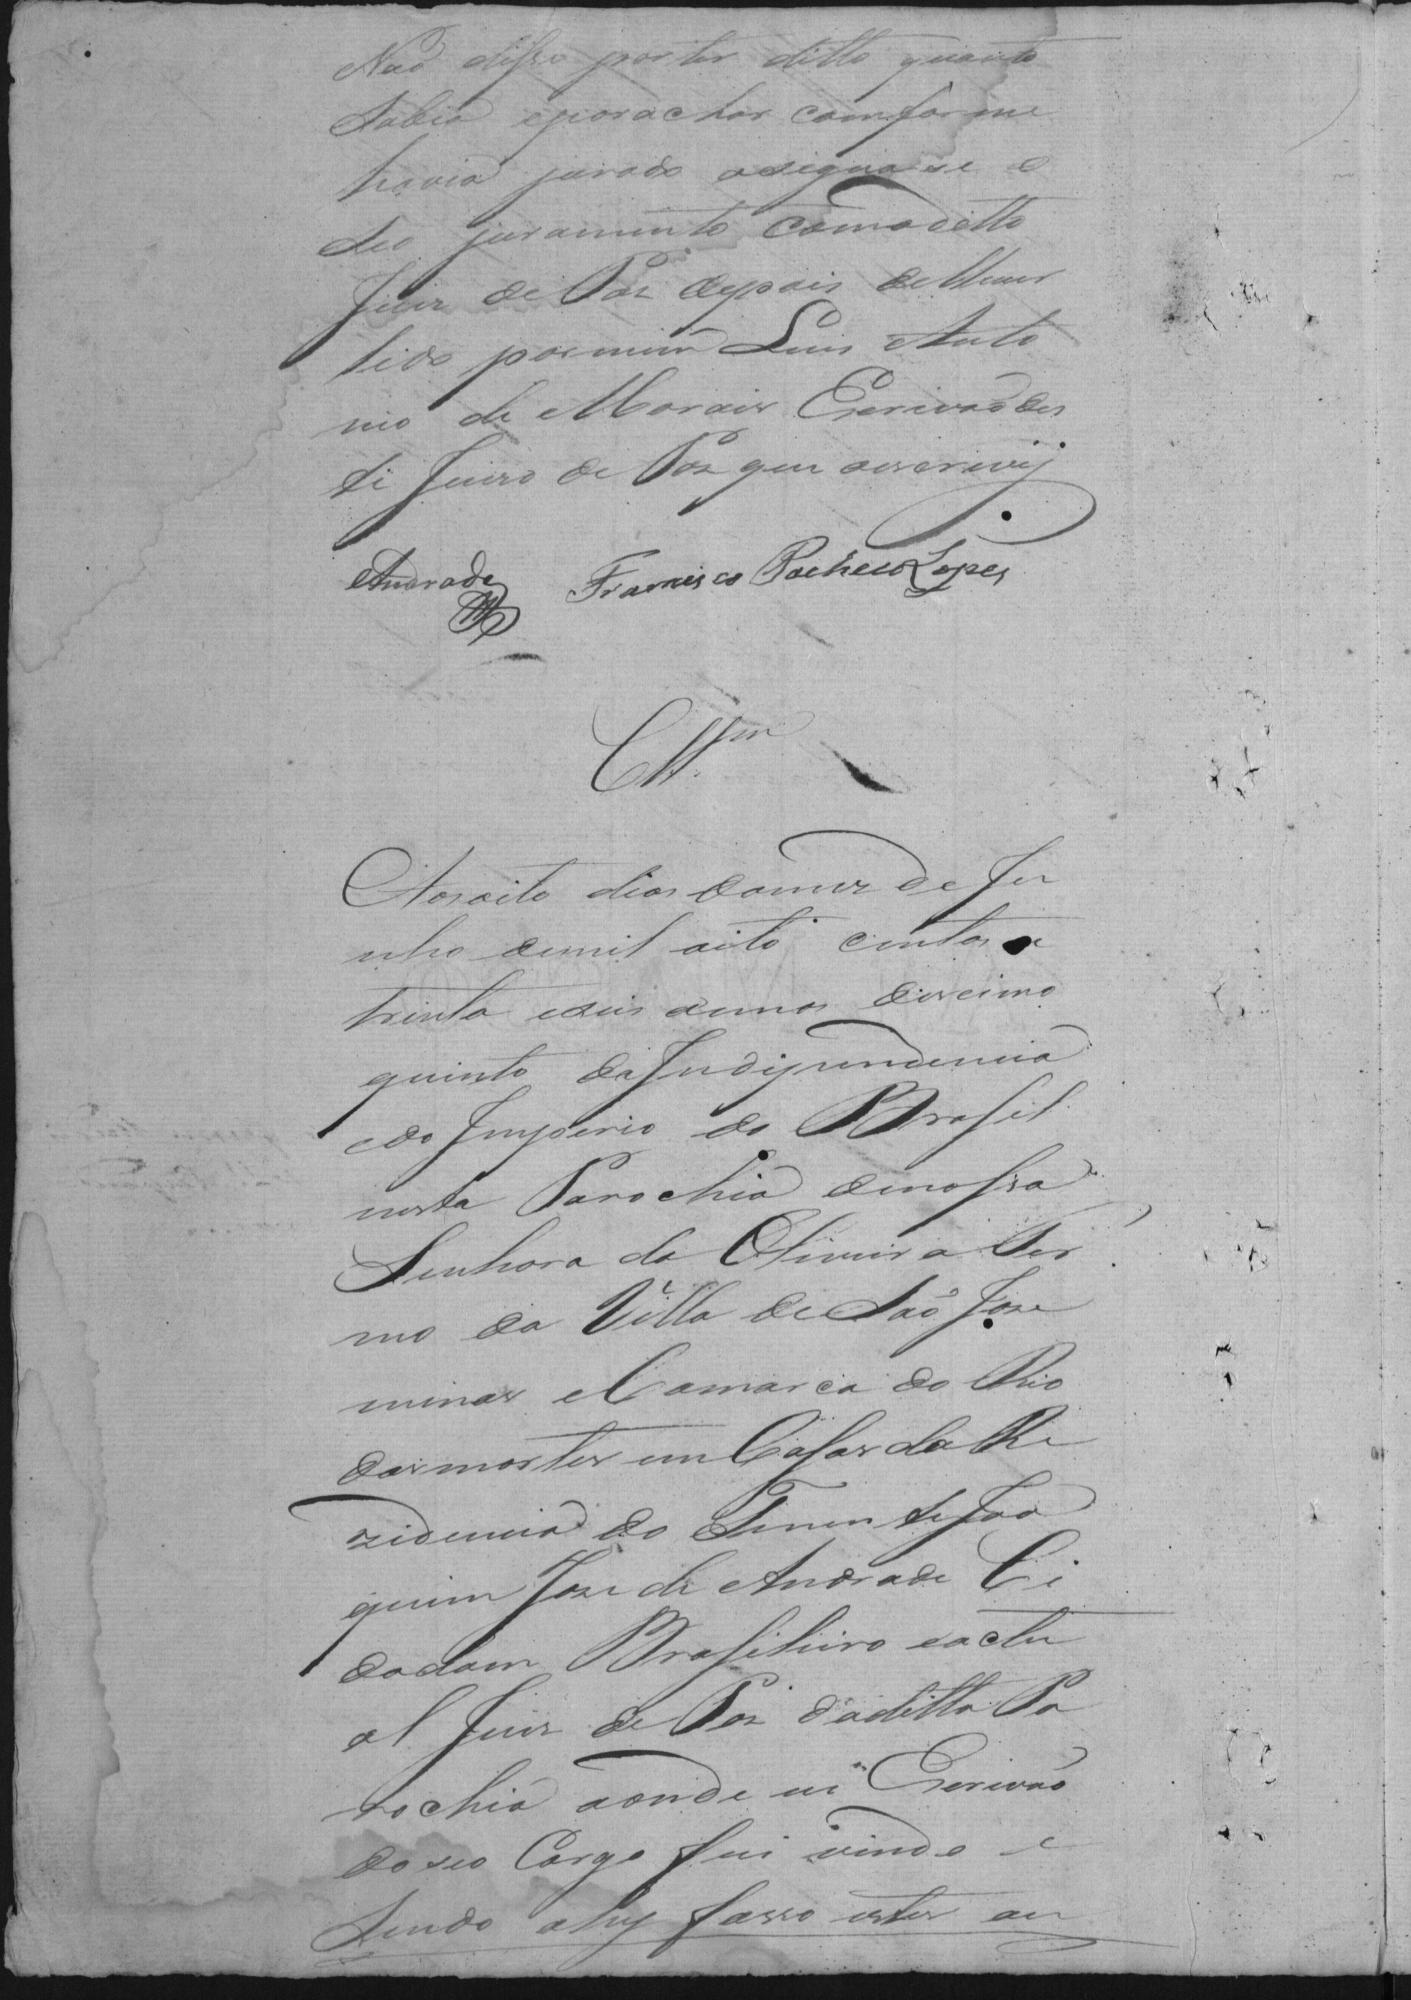 Não disse por ter ditto quanto
Sabia eporachar comforme
havia jurado asigna-se o
seo juramento como ditto
Juis de Pas depois delhe ser
lido por mim Luis Anto
nio de Morais Escrivão des
te Juiso de Pas que oescrivij
Andrade Francisco Pacheco Lopes
Aos oito dias domes de Ju
nho demil oito centos e
trinta eseis annos decimo
quinto da Indipendencia
edo Imperio do Brasil
nesta Parochia denossa
Senhora da Oliveira Ter
mo da Villa de São Jose
minas e Comarca do Rio
dasmortes em Casas da Re
zidencia do Tenente Joa
quim Jose de Andrade Ci
dadam Brasileiro eactu
al Juis de Pas daditta Pa
rochia aonde eu Escrivão
do seo Cargo fui vindo e
Sendo ahy fasso estes au